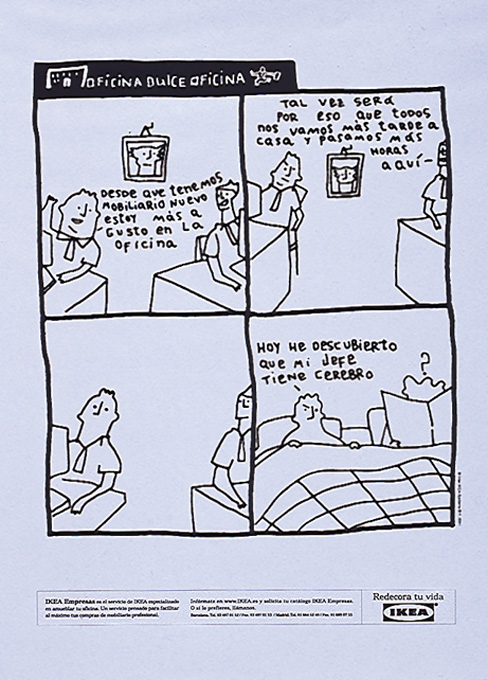 OFICINA DULCE OFICINA
DESDE QUE TENEMOS
MOBILIARIO NUEVO
ESTOY MÁS A
GUSTO EN LA
OFICINA
TAL VEZ SERÁ
POR ESO QUE TODOS
NOS VAMOS MÁS TARDE A
CASA Y PASAMOS MÁS
HORAS
AQUÍ-
HOY HE DESCUBIERTO
QUE MI JEFE
TIENE CEREBRO
?
IKEA Empresas es el servicio de IKEA especializado
en amueblar tu oficina. Un servicio pensado para facilitar
al máximo tus compras de mobiliario profesional.
Infórmate en www.IKEA.es y solicita tu catálogo IKEA Empresas.
O si lo prefieres, llámanos.
Redecora tu vida
IKEA